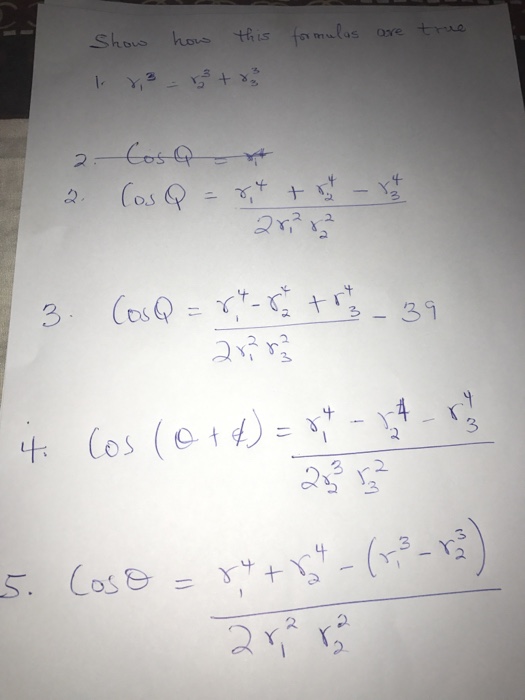 Show how this formulas are true
1. r₁³ = r₂³ + r₃³
2. Cos Q = r₁⁴
2. Cos Q = (r₁⁴ + r₂⁴ - r₃⁴) / (2r₁² r₂²)
3. Cos Q = (r₁⁴ - r₂⁴ + r₃⁴) / (2r₁² r₃²) - 39
4. Cos (θ + ¢) = (r₁⁴ - r₂⁴ - r₃⁴) / (2r₂³ r₃²)
5. Cos θ = (r₁⁴ + r₂⁴ - (r₁³ - r₂³)) / (2r₁² r₂²)